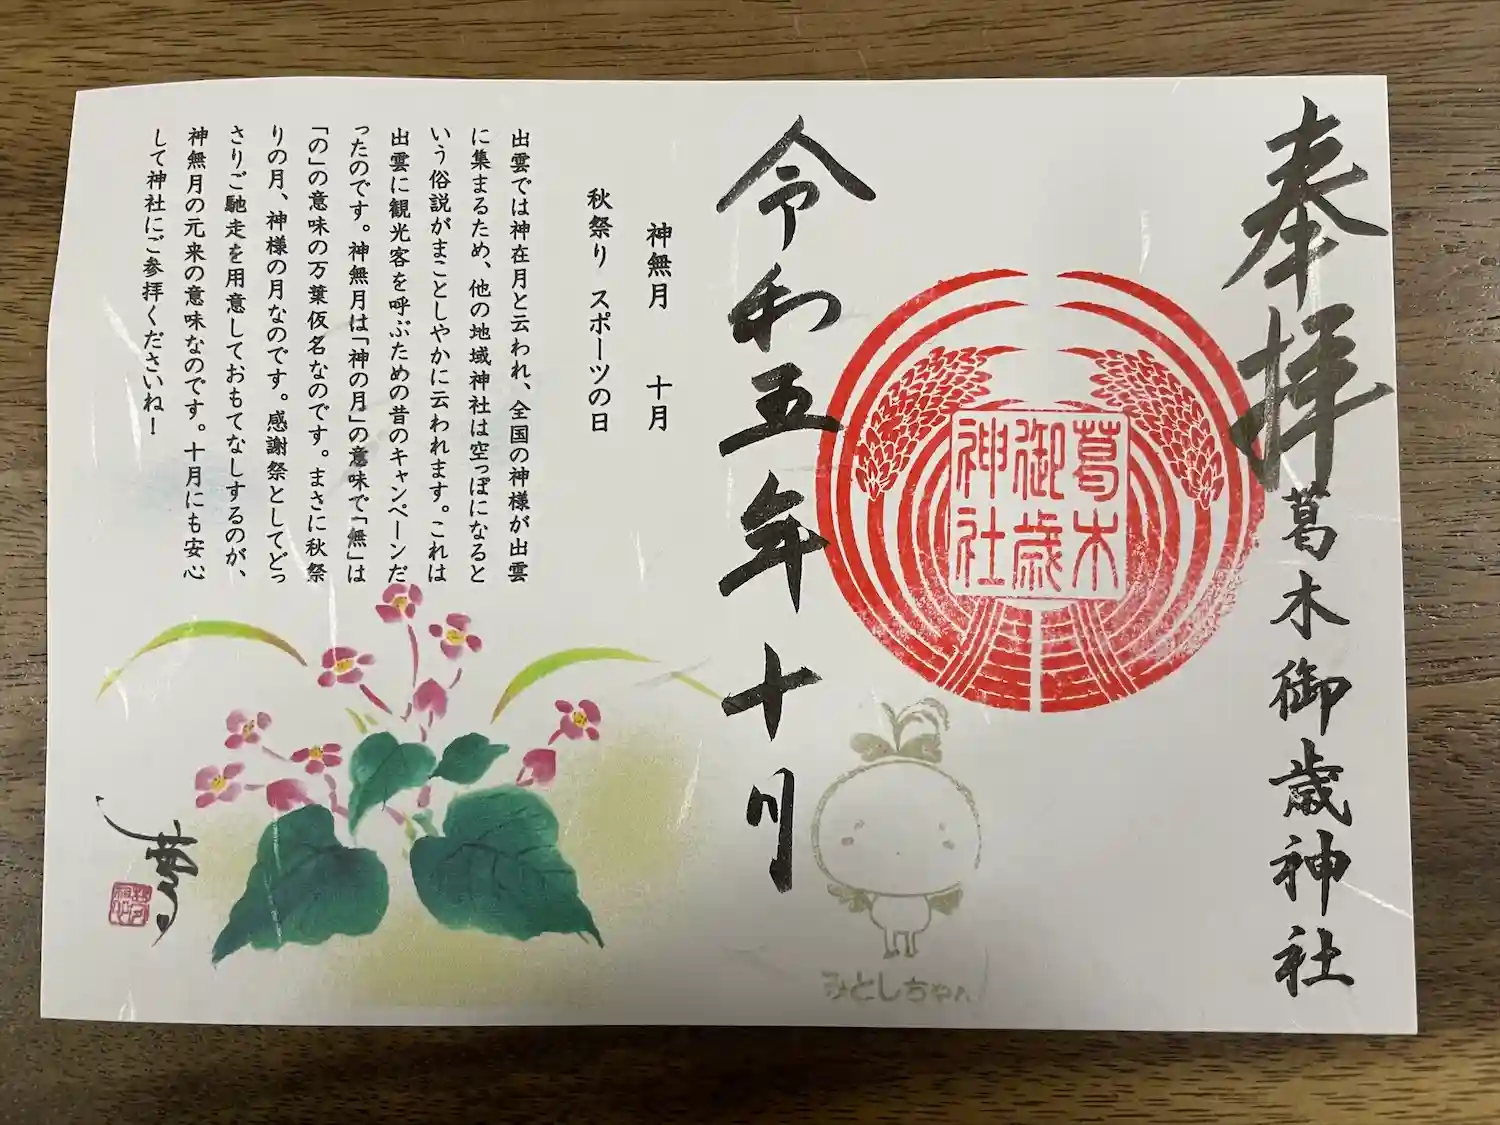 奉拝
葛木御歳神社
葛木
御歳
神社
令和五年十月
みとしちゃん
神無月　十月
秋祭り　スポーツの日
出雲では神在月と云われ、全国の神様が出雲
に集まるため、他の地域神社は空っぽになると
いう俗説がまことしやかに云われます。これは
出雲に観光客を呼ぶための昔のキャンペーンだ
ったのです。神無月は「神の月」の意味で「無」は
「の」の意味の万葉仮名なのです。まさに秋祭
りの月、神様の月なのです。感謝祭としてどっ
さりご馳走を用意しておもてなしするのが、
神無月の元来の意味なのです。十月にも安心
して神社にご参拝くださいね！